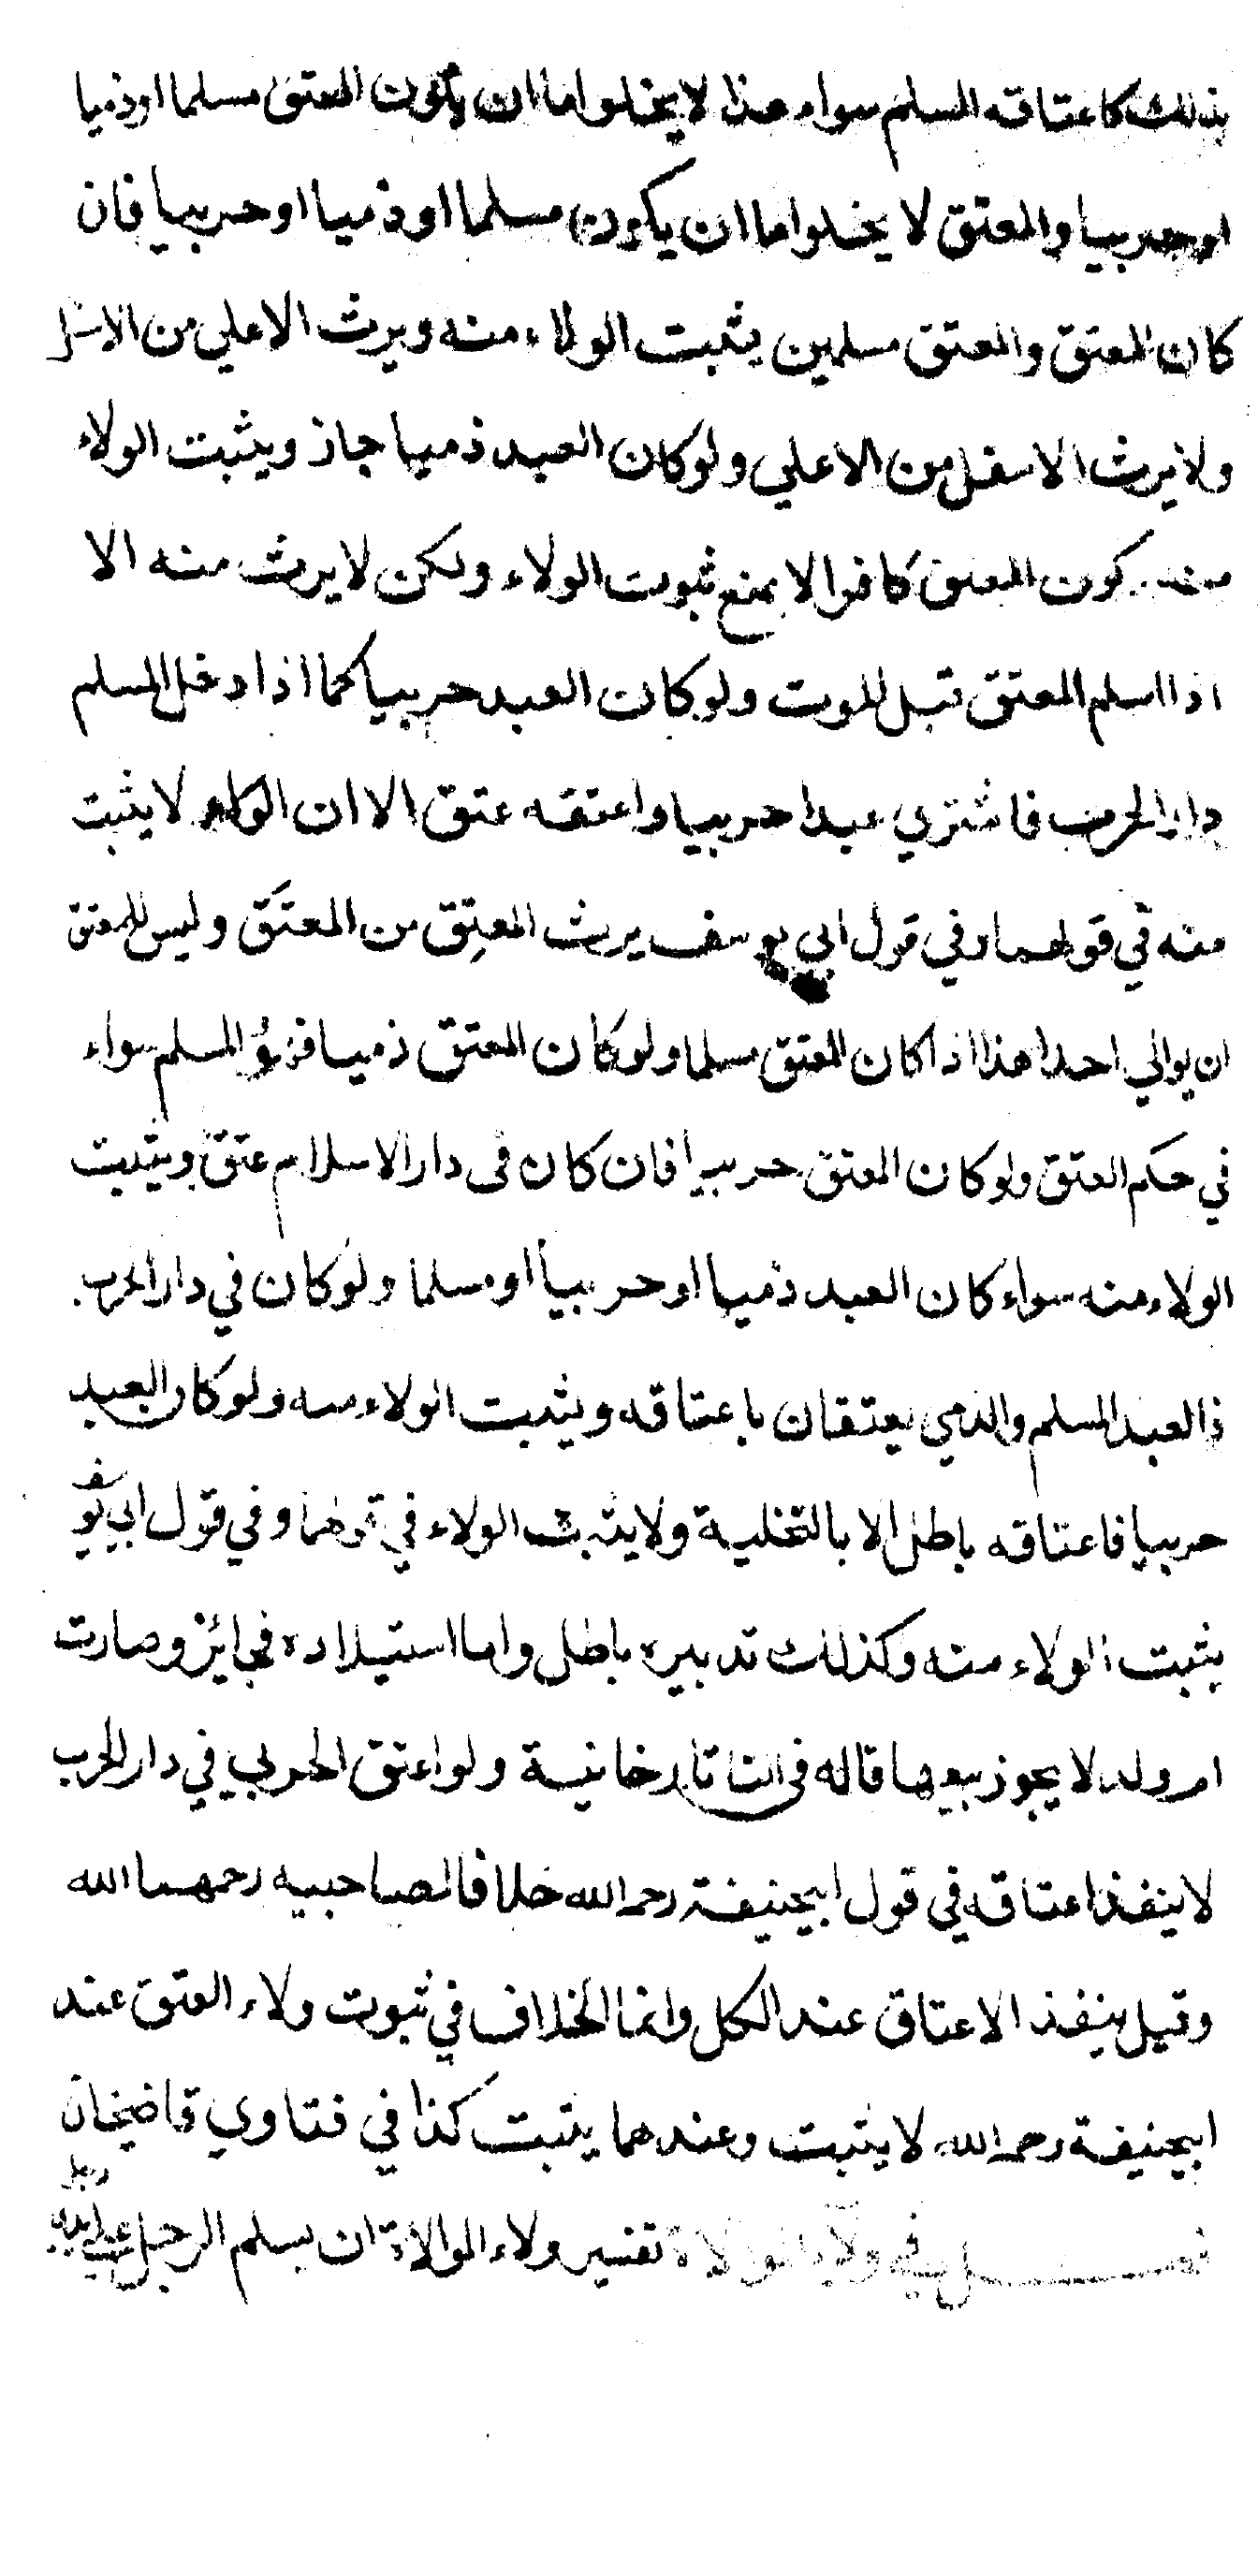 بذلك كاعتاقه المسلم سواء هذا لا يخلوا ما ان يكون المعتق مسلما او ذميا
او حربيا والمعتق لا يخلوا ما ان يكون مسلما او ذميا او حربيا فان
كان المعتق والمعتق مسلمين يثبت الولاء منه ويرث الاعلي من الاسفل
ولا يرث الاسفل من الاعلي ولو كان العبد ذميا جاز ويثبت الولاء
منه كون المعتق كافرا لا يمنع ثبوت الولاء ولكن لا يرث منه الا
اذا اسلم المعتق قبل الموت ولو كان العبد حربيا كما اذا دخل المسلم
دار الحرب فاشتري عبدا حربيا واعتقه عتق الا ان الولاء لا يثبت
منه في قولهما وفي قول ابي يوسف يرث المعتِق من المعتَق وليس للمعتق
ان يوالي احدا هذا اذا كان المعتق مسلما ولو كان المعتق ذميا فهوُ المسلم سواء
في حكم العتق ولو كان المعتق حربيا فان كان في دار الاسلام عتق ويثبت
الولاء منه سواء كان العبد ذميا او حربيا او مسلما ولو كان في دار الحرب
فالعبد المسلم والذمي يعتقان باعتاقه ويثبت الولاء منه ولو كان العبد
حربيا فاعتاقه باطل الا بالتخلية ولا يثبت الولاء في قولهما وفي قول ابي يوسف
يثبت الولاء منه وكذلك تدبيره باطل واما استيلاده فجائز وصارت
ام ولد لا يجوز بيعها قاله في التاتارخانية ولو اعتق الحربي في دار الحرب
لا ينفذ اعتاقه في قول ابيحنيفة رحمه الله خلافا لصاحبيه رحمهما الله
وقيل ينفذ الاعتاق عند الكل وانما الخلاف في ثبوت ولاء العتق عند
ابيحنيفة رحمه الله لا يثبت وعندهما يثبت كذا في فتاوي قاضيخان
فصل في ولاء الموالاة تفسير ولاء الموالاة ان يسلم الرجل علي يد رجل